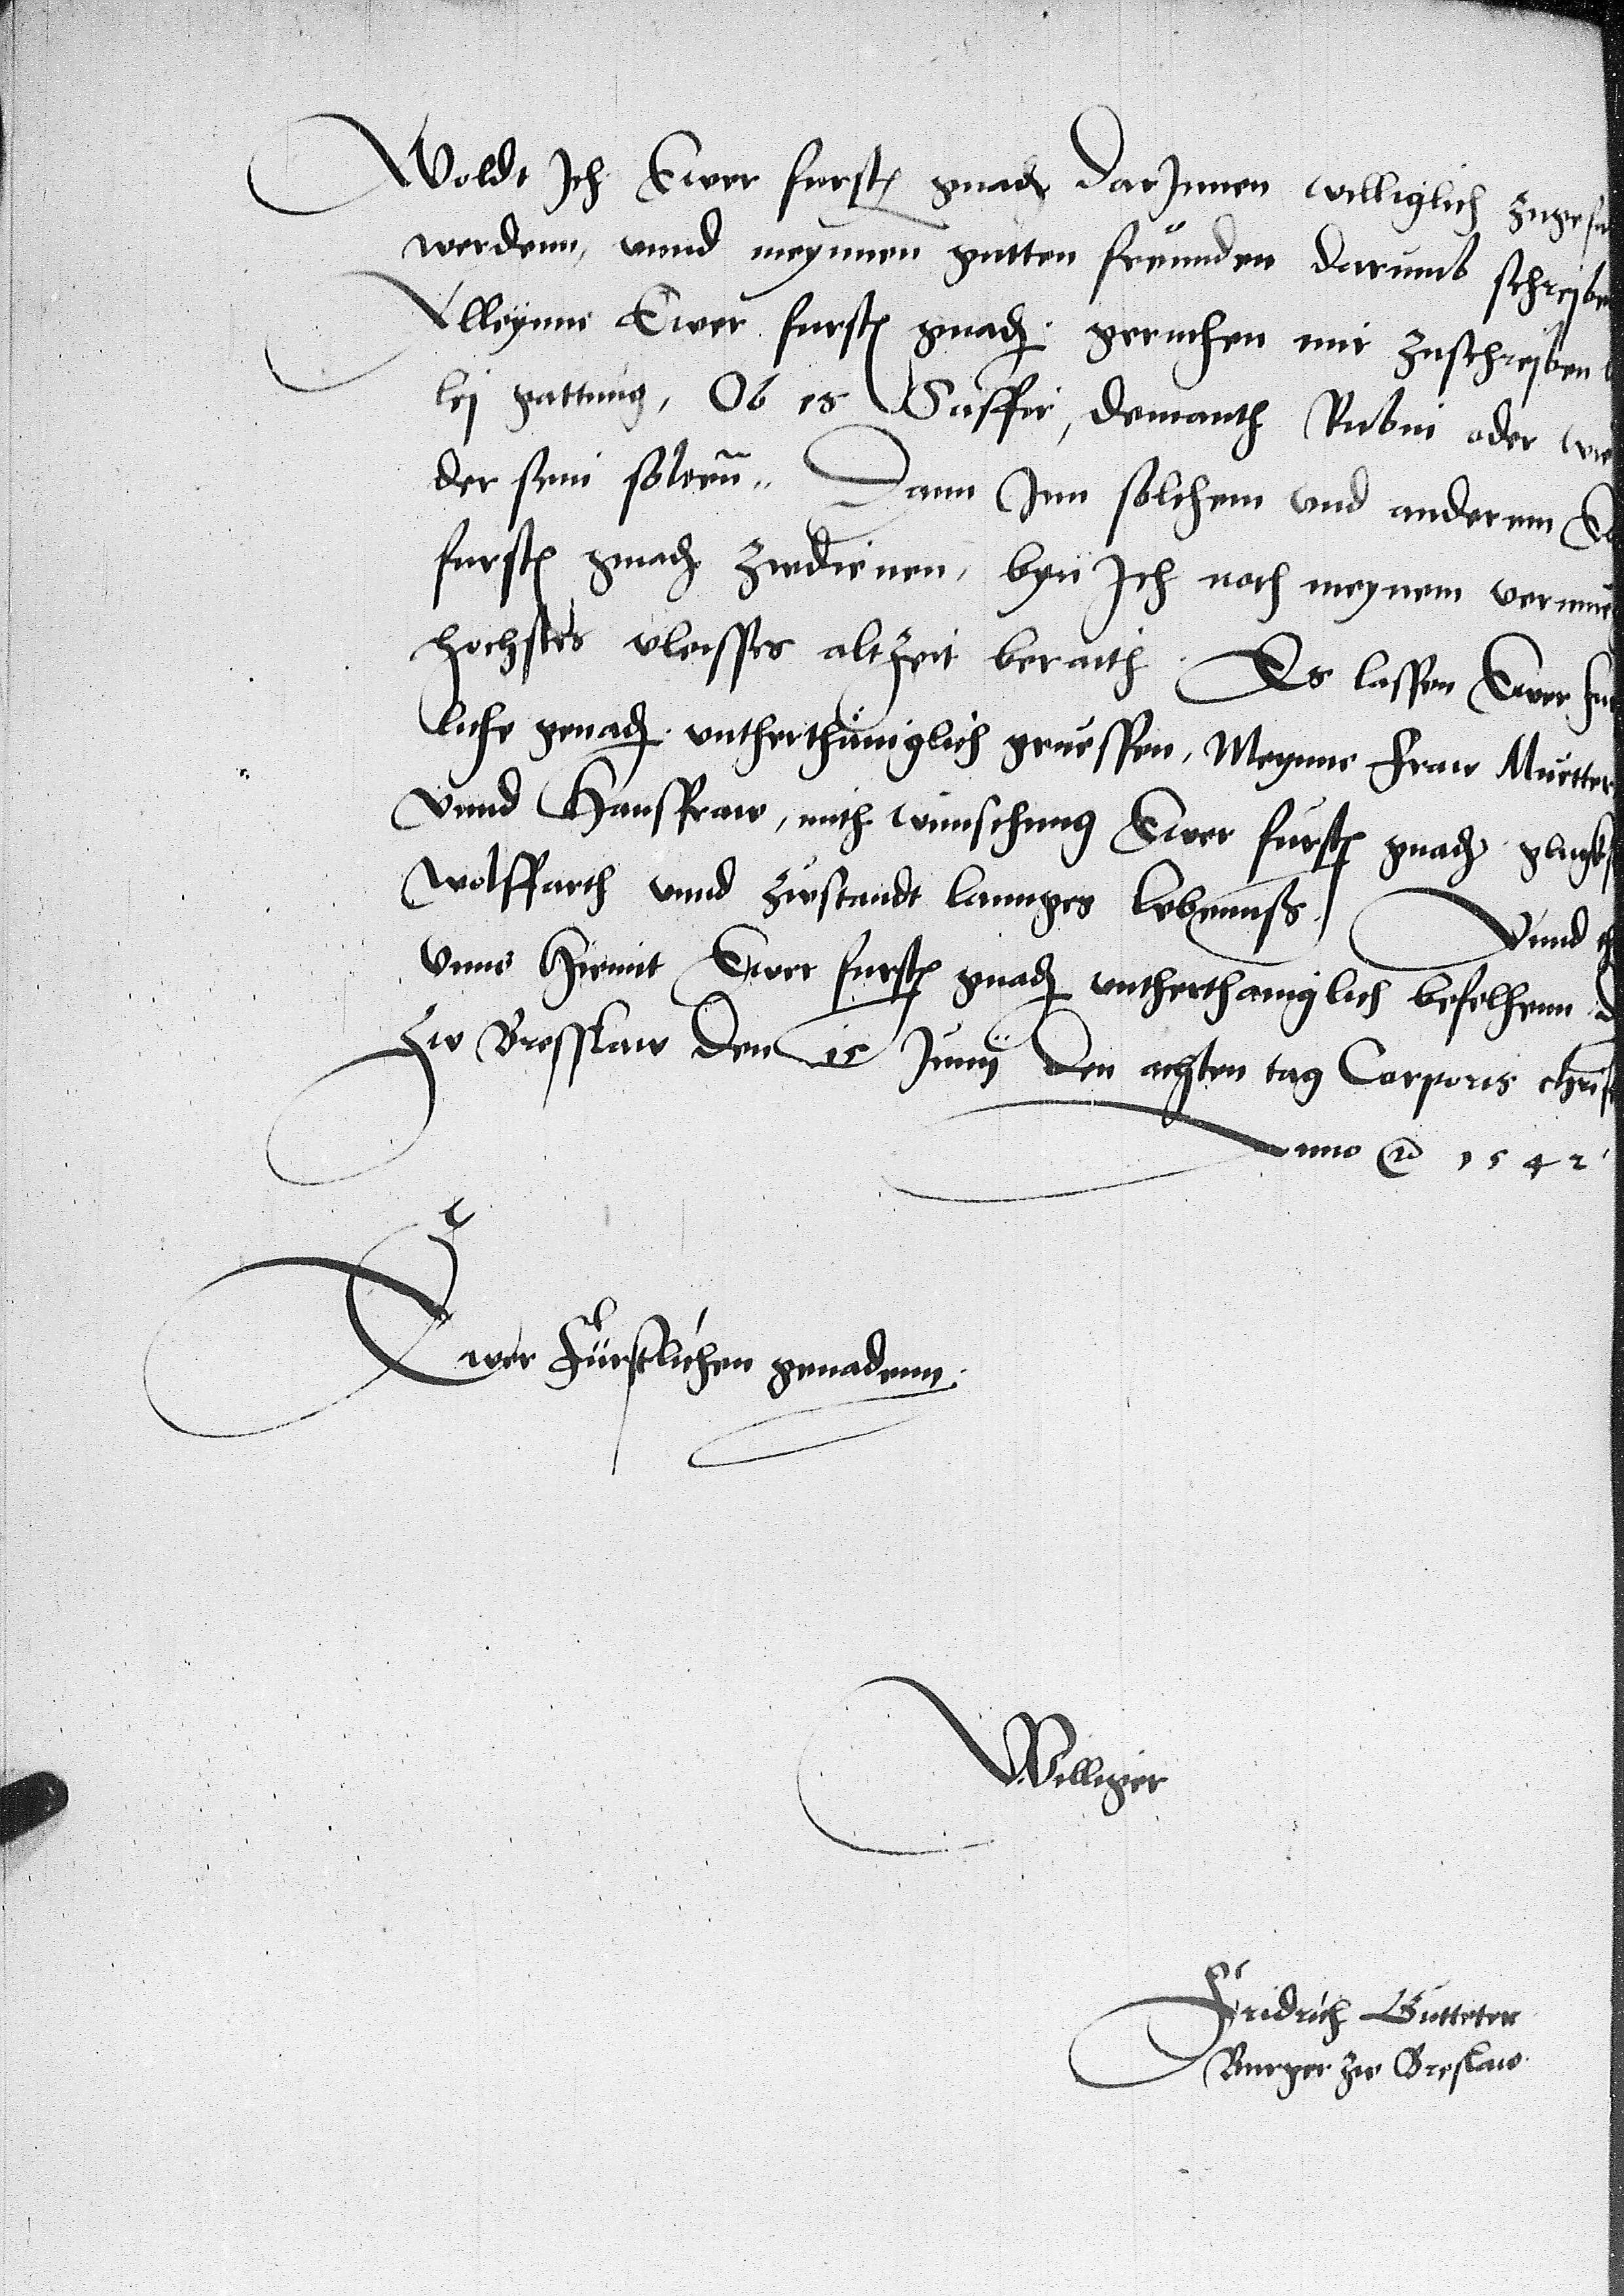 Woldt Ich Ewer furstl gnad darInnen williglich zugefu
werdenn, vnnd meynnen gutten freunden darumb schreybe
Alleynne Ewer furstl gnad geruchen mir zuschreyben
ley gattung, Ob es Saffir, demanth Rubin oder we
der sein soltenn. Dann Inn solchem vnd anderem E
furstl gnad zwdienen, byn Ich noch meynem vermue
hochstes vleysses altzeit beraith. Es lassen Ewer fur
liche genad vntherthäniglich gruessen, Meynne fraw Muetter
vnnd Hausfraw, mith wünschung Ewer furstl gnad gluck
wolffarth vnnd zuestandt lannges lebennss. Vnnd th
vnns hiemit Ewer furstl gnad vntherthaniglich befelhenn d
Zw Bresslaw den 15 Junij den achten tag Corporis christ
Anno 1542
Ewer Fürstlichen genadenn
Williger
Fridrich Gutteter
Burger zw Breslaw